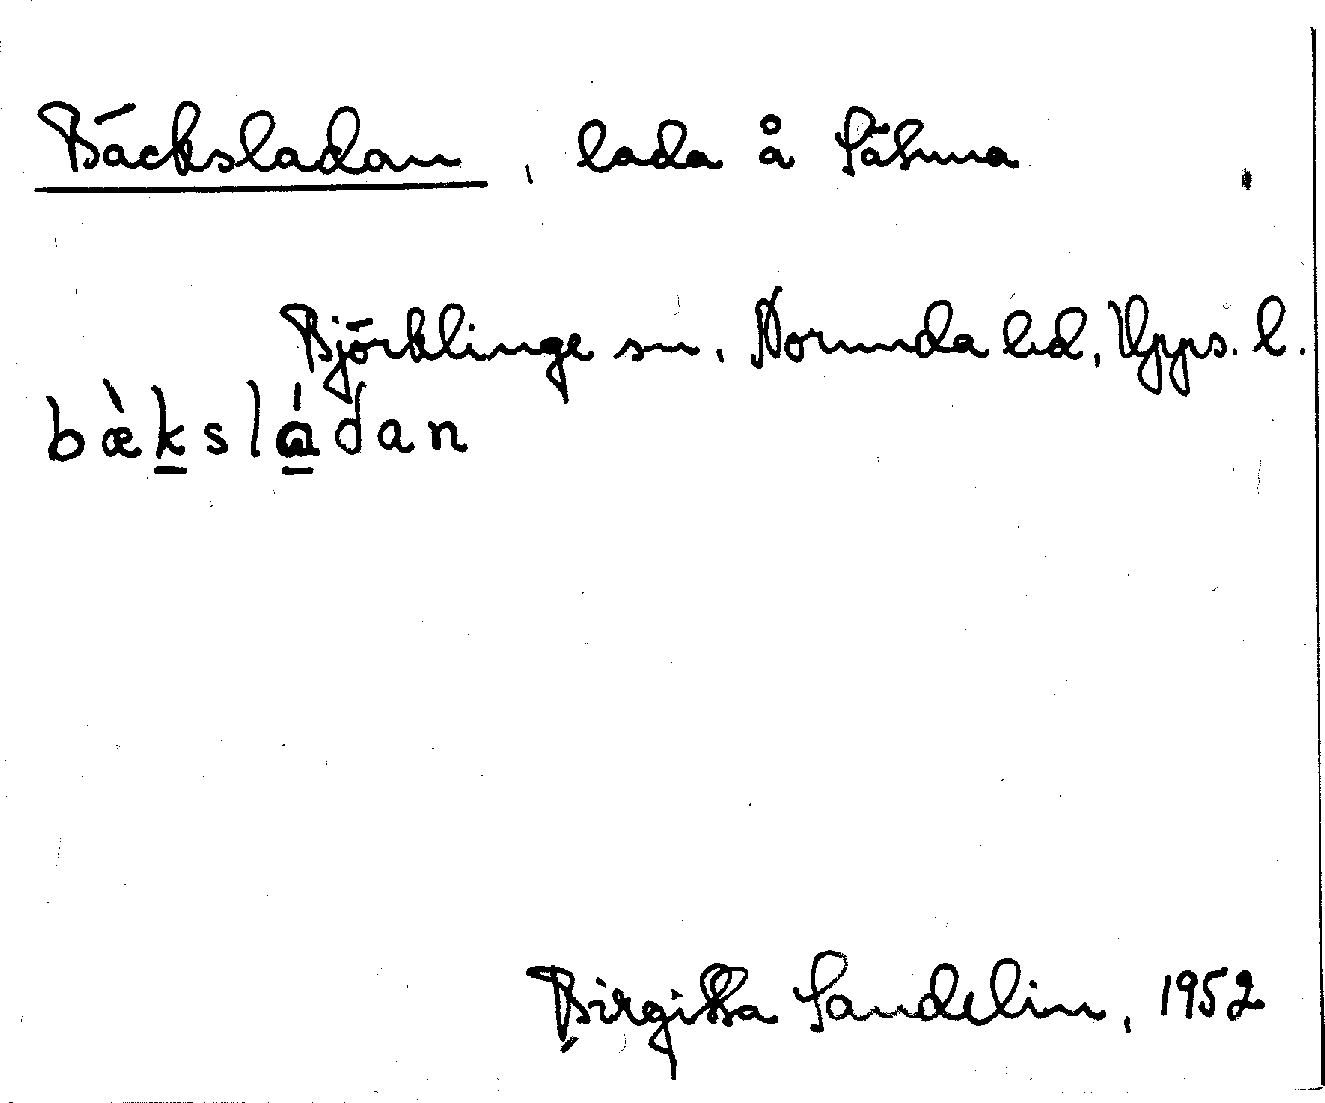 Bäcksladan, lada å Sätuna
Björklinge sn, Norunda hd, Upps. l.
bæ̀ksládan
Birgitta Sandelin, 1952